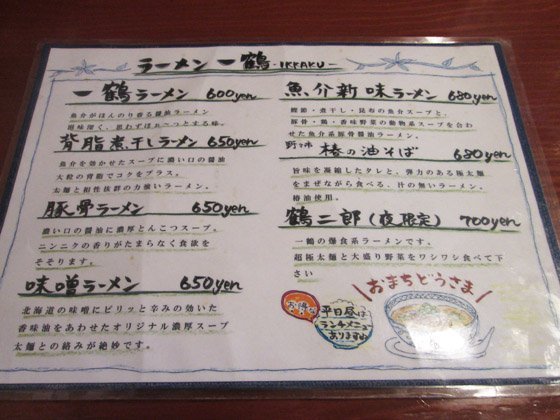 ラーメン 一鶴 -IKKAKU-
一鶴ラーメン 600yen
魚介がほんのり香る醤油ラーメン
超味深く、思わずほぉ〜っとする味。
背脂煮干しラーメン 650yen
魚介を効かせたスープに濃い口の醤油
大粒の背脂でコクをプラス。
太麺と相性抜群の力強いラーメン。
豚骨ラーメン 650yen
濃い口の醤油に濃厚とんこつスープ。
ニンニクの香りがたまらなく食欲を
そそります。
味噌ラーメン 650yen
北海道の味噌にピリッと辛みの効いた
香味油をあわせたオリジナル濃厚スープ
太麺との絡みが絶妙です。
魚介新味ラーメン 680yen
鰹節・煮干し・昆布の魚介スープと、
豚骨・鶏・香味野菜の動物系スープを合わ
せた魚介系豚骨醤油ラーメン。
野々市 椿の油そば 680yen
旨味を凝縮したタレと、弾力のある極太麺
をまぜながら食べる、汁の無いラーメン。
椿油使用。
鶴二郎(夜限定) 700yen
一鶴の爆食系ラーメンです。
超極太麺と大盛り野菜をワシワシ食べて下
さい
おまちどうさま
お得な
平日昼は
ランチメニュー
ありますよ